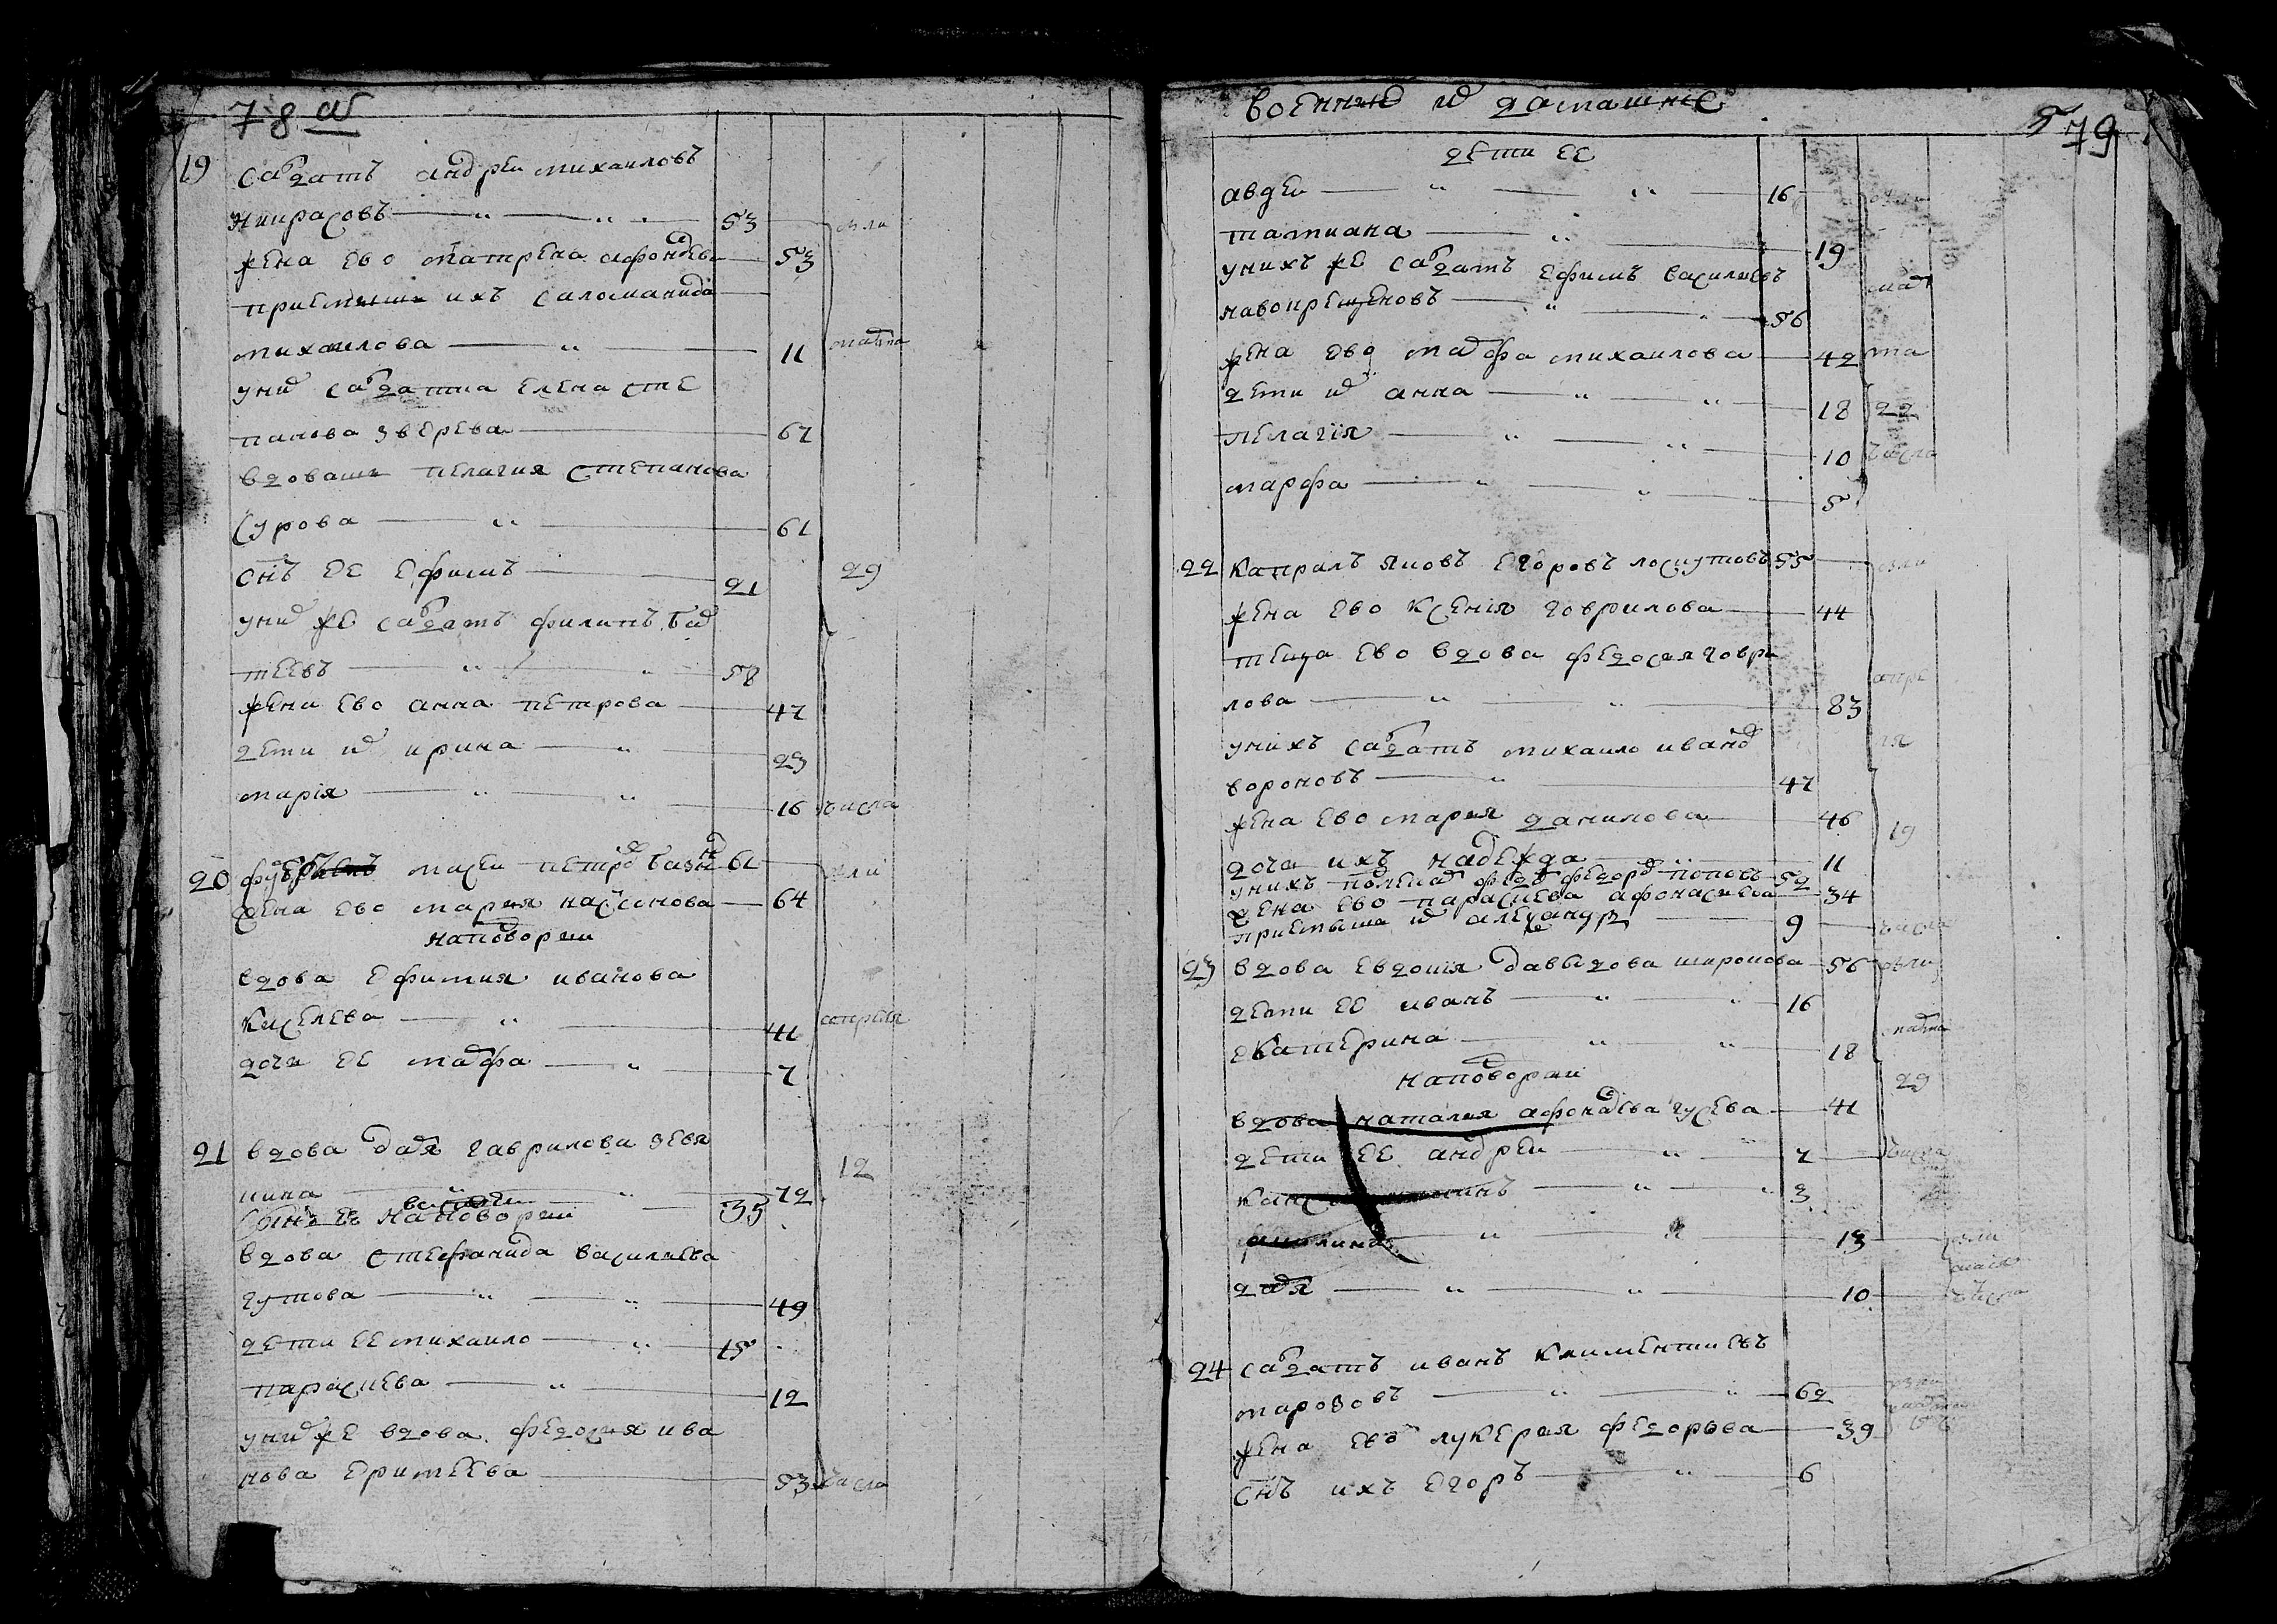 78 об
19 салдатъ андреи михаиловъ
некрасовъ 53 были
жена ево матрена афонасева 53
приемышъ ихъ саломанида
михаилова 11 марта
у них салдатка елена сте
панова зверева 67
вдова пелагия степанова
сурова 61
снъ ее ефимъ 21 29
у них же салдатъ филипъ
теевъ 58
жена ево анна петрова 47
дети их ирина 23
мария 16 числа
20 мосеи петров 61 были
жена ево мария 64
на подворьи
вдова ефимия иванова
киселева 41 апреля
дочь ее марфа 7
21 вдова даря гаврилова зевя
кина 72 12
сынъ ее 35
на подворьи
вдова стефанида василиева
гутова 49
дети ее михаило 15
параскева 12
у них же вдова федосия ива
нова еримеева 53 числа
военние и домашние
79
дети ее
авдеи 16 были
татиана 19
у нихъ же салдатъ ефимъ василиевъ
навокрещеновъ 56 мар
жена ево марфа михаилова 42 та
дети их анна 18 22
пелагия 10 числа
марфа 5
22 капралъ яковъ егоровъ лоскутовъ 55 были
жена ево ксения гаврилова 44
теща ево вдова федосия гаври
лова 83 апре
у нихъ салдатъ михаило иванов ля
вороновъ 47
жена ево мария данилова 46 19
дочь ихъ надежда 11
у нихъ федор поповъ 52
жена ево параскева афонасиева 34
приемышъ их александръ 9 числа
23 вдова евдокия давыдова широкова 56 были
дети ее иванъ 16
екатерина 18 марта
на подворьи 29
вдова наталия афонасева гусева 41
дети ее андреи 7 числа
3
акилина 13 были
даря 10 числа
24 салдатъ иванъ климентиевъ
марозовъ 62
жена ево лукерия федорова 39
снъ ихъ егоръ 6